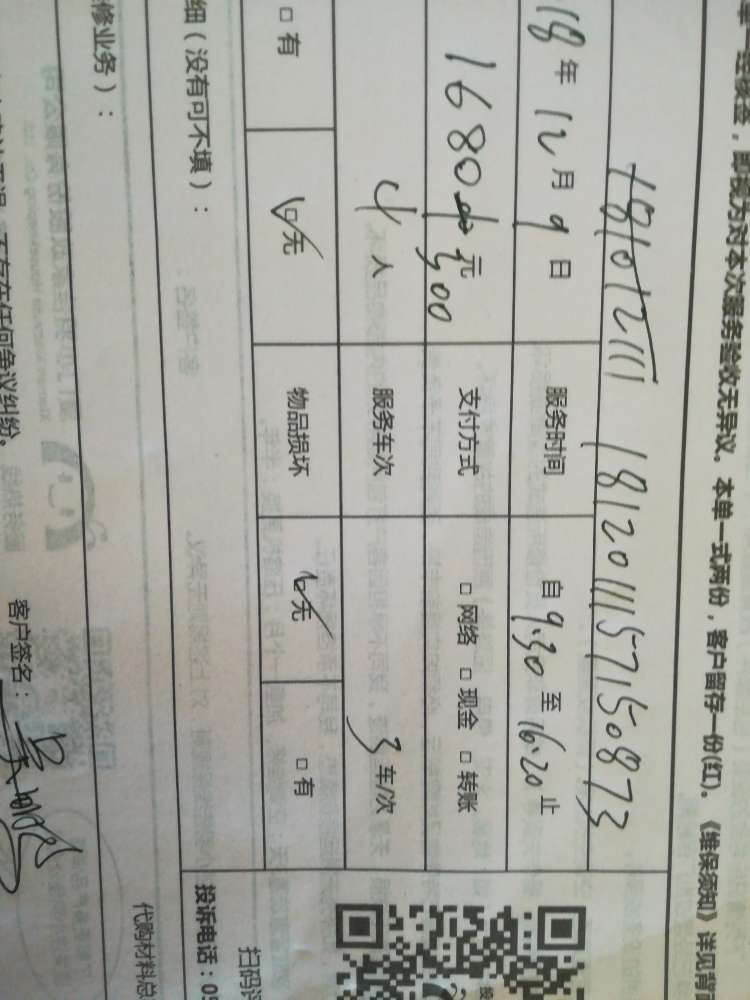 单一经核签，即视为对本次服务验收无异议。本单一式两份，客户留存一份(红)。《维保须知》详见背
181012111 1812011157150873
18年12月9日 服务时间 自9:30至16:20止
1680元 300 支付方式 □网络 □现金 □转账
4人 服务车次 3车/次
□有 ☑无 物品损坏 ☑无 □有
细（没有可不填）： 投诉电话：05
扫码评
代购材料总
修业务）：
不存在任何争议纠纷。 客户签名：